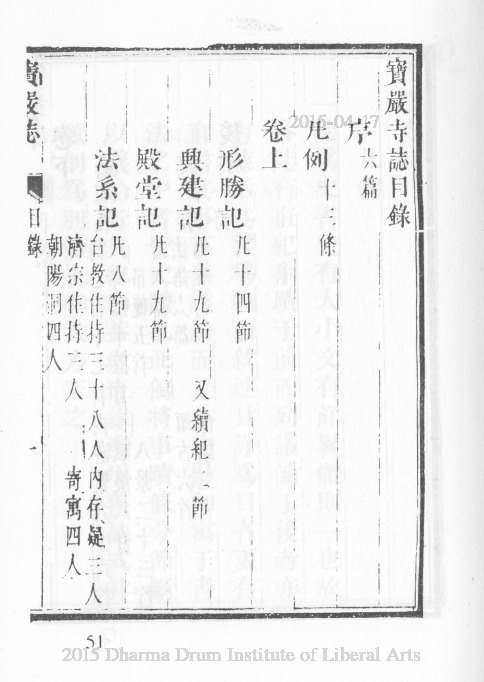 寶嚴寺誌目錄
序 六篇
凡例 十三條
卷上
形勝記 凡十四節
興建記 凡十九節 又續紀一節
殿堂記 凡十九節
法系記 凡八節
台教住持三十八人內存疑三人
濟宗住持 人 寄寓四人
朝陽洞四人
嚴誌 目錄 一
51
2015-04-17
2015 Dharma Drum Institute of Liberal Arts